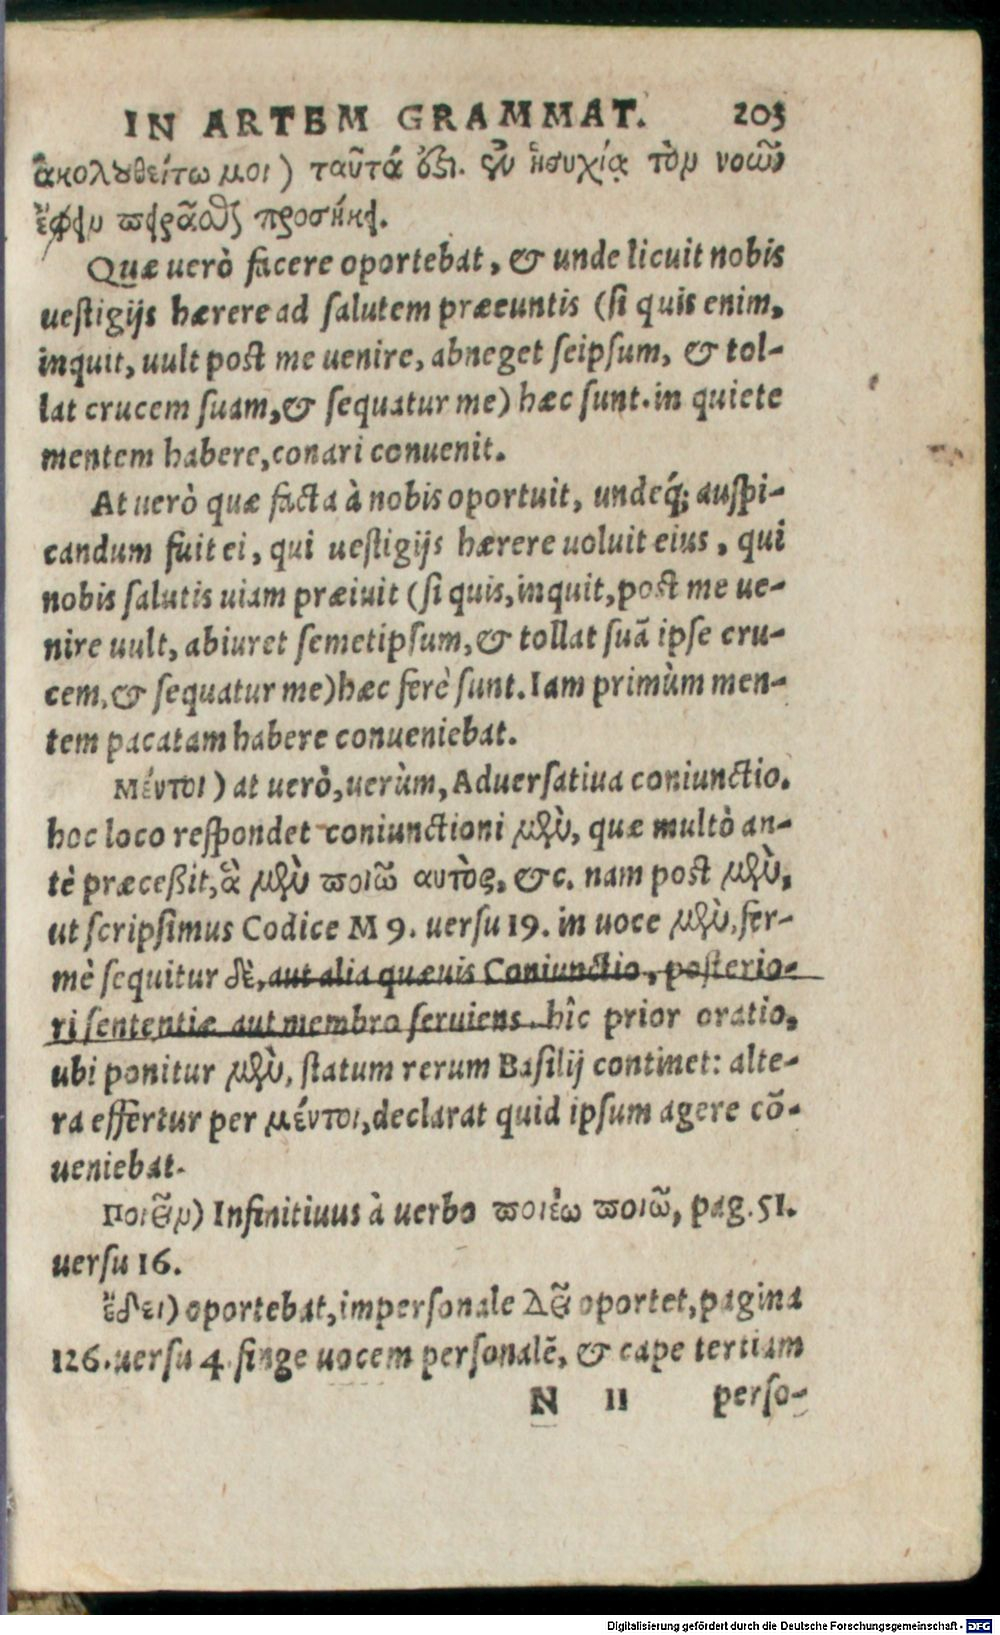 IN ARTEM GRAMMAT. 203
ἀκολουθείτω μοι) ταῦτά ἐστι. ἐν ἡσυχίᾳ τὸν νοῦν
ἔχειν πειρᾶσθαι προσήκει.
Quæ uerò facere oportebat, & unde licuit nobis
uestigijs hærere ad salutem præeuntis (si quis enim,
inquit, uult post me uenire, abneget seipsum, & tol-
lat crucem suam, & sequatur me) hæc sunt. in quiete
mentem habere, conari conuenit.
At uerò quæ facta à nobis oportuit, undeq́; auspi-
candum fuit ei, qui uestigijs hærere uoluit eius, qui
nobis salutis uiam præiuit (si quis, inquit, post me ue-
nire uult, abiuret semetipsum, & tollat suā ipse cru-
cem, & sequatur me) hæc ferè sunt. Iam primùm men-
tem pacatam habere conueniebat.
Μέντοι) at uerò, uerùm, Aduersatiua coniunctio.
hoc loco respondet coniunctioni μὲν, quæ multò an-
tè præceßit, ἃ μὲν ποιῶ αυτὸς, &c. nam post μὲν,
ut scripsimus Codice M 9. uersu 19. in uoce μὲν, fer-
mè sequitur δὲ, aut alia quæuis Coniunctio, posterio-
ri sententiæ aut membro seruiens. hîc prior oratio,
ubi ponitur μὲν, statum rerum Basilij continet: alte-
ra effertur per μέντοι, declarat quid ipsum agere cō-
ueniebat.
Ποιεῖν) Infinitiuus à uerbo ποιέω ποιῶ, pag. 51.
uersu 16.
ἔδει) oportebat, impersonale Δεῖ oportet, pagina
126. uersu 4. finge uocem personalē, & cape tertiam
N II perso-
Digitalisierung gefördert durch die Deutsche Forschungsgemeinschaft - DFG